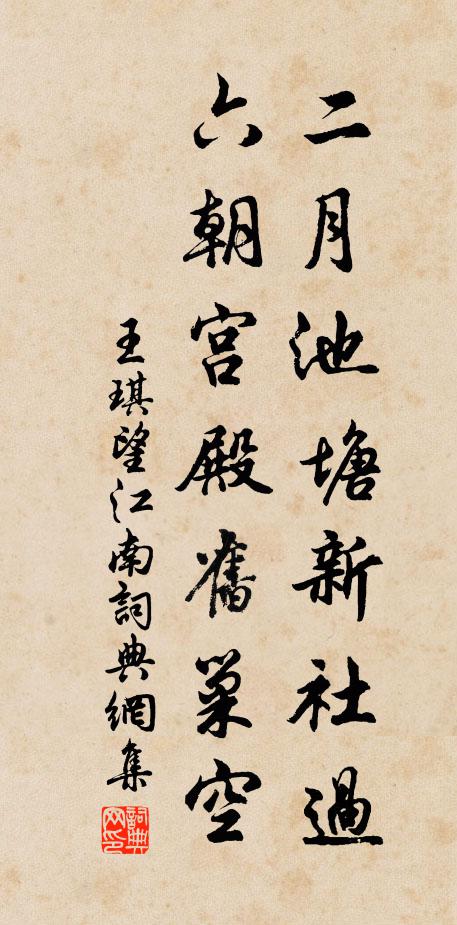 二月池塘新社過
六朝宮殿舊巢空
王琪望江南詞典網集
詞典網印